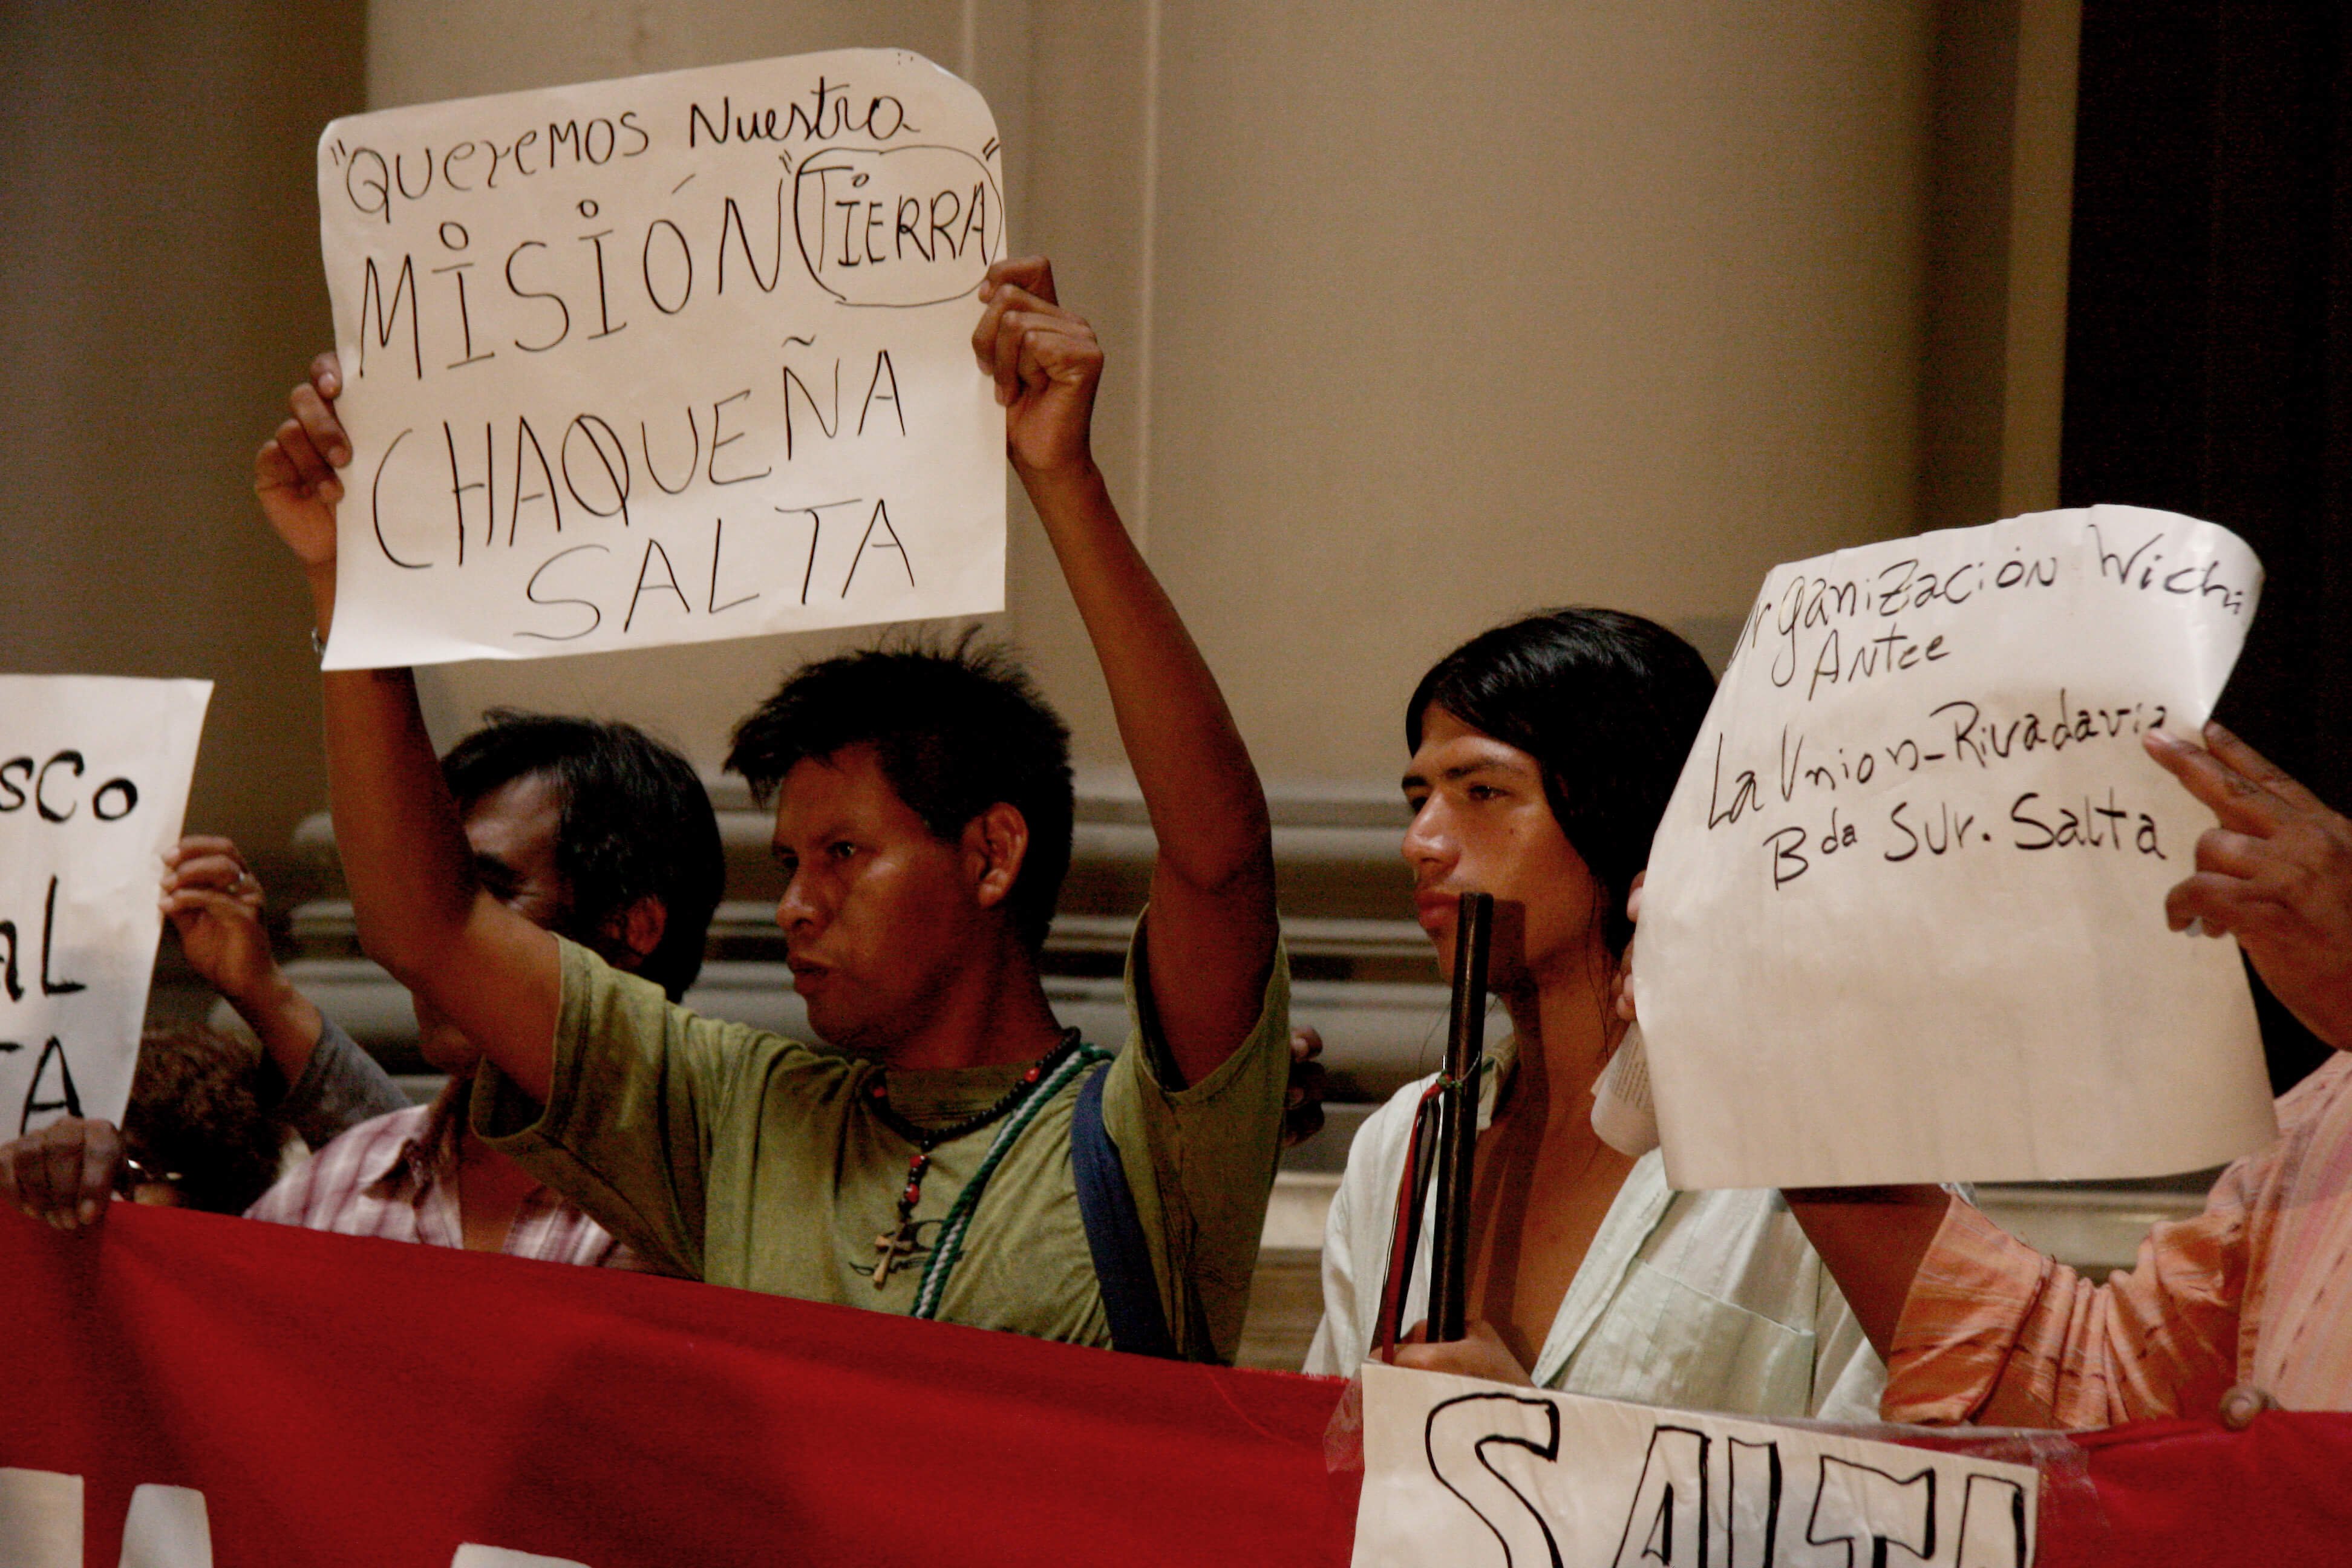 "QUereMOS Nuestra
MiSiÓN "TiERRA"
CHAQUEÑA
SALTA
sco
AL
TA
Organización Wichi
Antee
La Union-Rivadavia
Bda Sur. Salta
SALTA